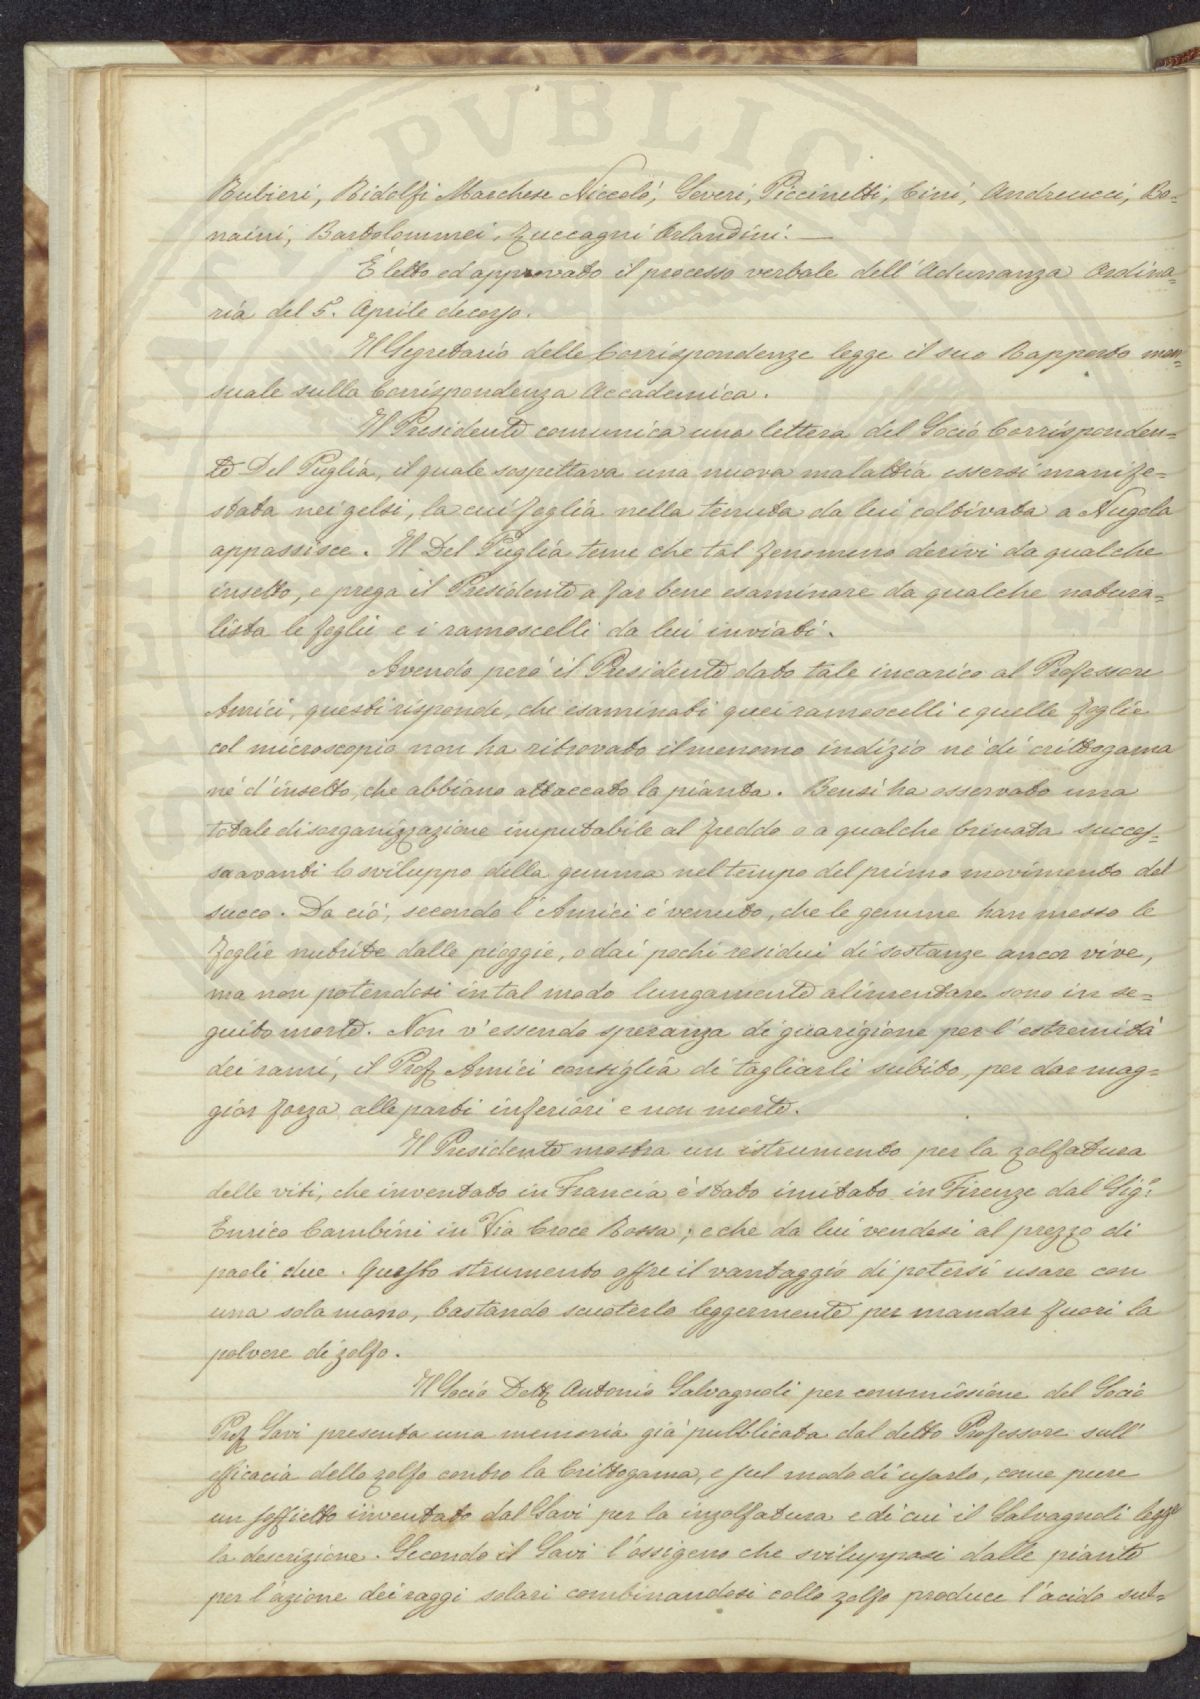 Rubieri, Ridolfi Marchese Niccolò, Severi, Piccinetti, Cini, Andreucci, Bo=
naini, Bartolommei, Zuccagni Orlandini. —
È letto ed approvato il processo verbale dell'Adunanza Ordina=
ria del 5. Aprile decorso.
Il Segretario delle Corrispondenze legge il suo Rapporto men=
suale sulla Corrispondenza Accademica.
Il Presidente comunica una lettera del Socio Corrisponden=
te Del Puglia, il quale sospettava una nuova malattia essersi manife=
stata nei gelsi, la cui foglia nella tenuta da lui coltivata a Nugola
appassisce. Il Del Puglia teme che tal fenomeno derivi da qualche
insetto, e prega il Presidente a far bene esaminare da qualche natura=
lista le foglie e i ramoscelli da lui inviati.
Avendo però il Presidente dato tale incarico al Professore
Amici, questi risponde, che esaminati quei ramoscelli e quelle foglie
col microscopio non ha ritrovato il menomo indizio nè di crittogama
nè d'insetto, che abbiano attaccato la pianta. Bensì ha osservato una
totale disorganizzazione imputabile al freddo o a qualche brinata succes=
sa avanti lo sviluppo della gemma nel tempo del primo movimento del
succo. Da ciò, secondo l'Amici è venuto, che le gemme han messo le
foglie nutrite dalle pioggie, o dai pochi residui di sostanze ancor vive,
ma non potendosi in tal modo lungamente alimentare sono in se=
guito morte. Non v'essendo speranza di guarigione per l'estremità
dei rami, il Prof. Amici consiglia di tagliarli subito, per dar mag=
gior forza alle parti inferiori e non morte.
Il Presidente mostra un istrumento per la zolfatura
delle viti, che inventato in Francia è stato imitato in Firenze dal Sig.r
Enrico Cambini in Via Croce Rossa; e che da lui vendesi al prezzo di
paoli due. Questo strumento offre il vantaggio di potersi usare con
una sola mano, bastando scuoterlo leggermente per mandar fuori la
polvere di zolfo.
Il Socio Dott. Antonio Salvagnoli per commissione del Socio
Prof. Savi presenta una memoria già pubblicata dal detto Professore sull'
efficacia dello zolfo contro la Crittogama, e sul modo di usarlo, come pure
un soffietto inventato dal Savi per la inzolfatura e di cui il Salvagnoli legge
la descrizione. Secondo il Savi l'ossigeno che sviluppasi dalle piante
per l'azione dei raggi solari combinandosi collo zolfo produce l'acido sul=
PVBLICA